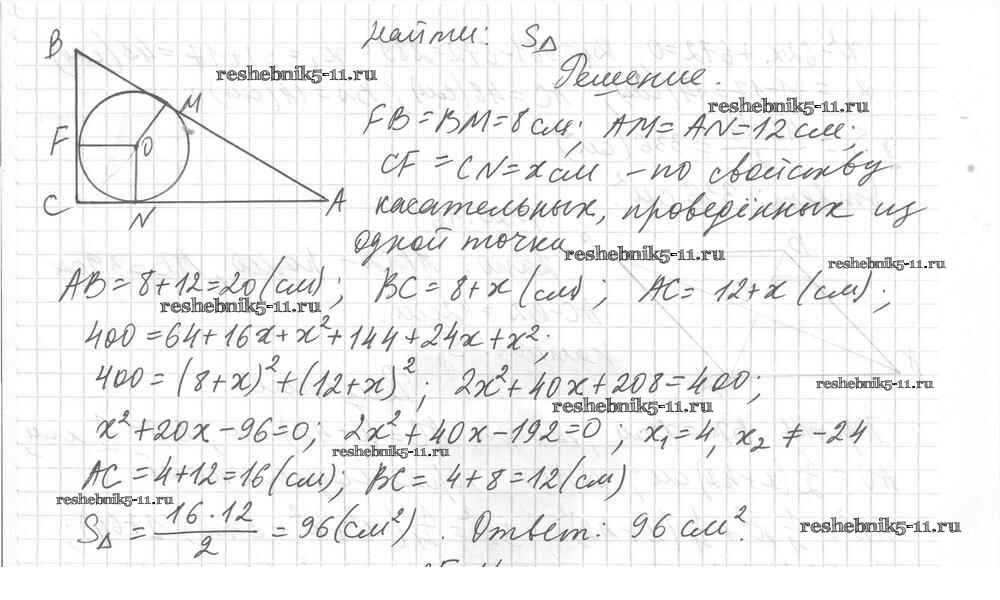 Найти: S△
Решение.
B
M
F
O
C
N
A
FB=BM=8 см; AM=AN=12 см;
CF=CN=x см –по свойству
касательных, проведённых из
одной точки
AB=8+12=20(см); BC=8+x (см); AC=12+x (см);
400=64+16x+x²+144+24x+x²;
400=(8+x)²+(12+x)²; 2x²+40x+208=400;
x²+20x-96=0; 2x²+40x-192=0; x₁=4, x₂≠-24
AC=4+12=16(см); BC=4+8=12(см)
S△=16·12/2=96(см²). Ответ: 96 см².
reshebnik5-11.ru
reshebnik5-11.ru
reshebnik5-11.ru
reshebnik5-11.ru
reshebnik5-11.ru
reshebnik5-11.ru
reshebnik5-11.ru
reshebnik5-11.ru
reshebnik5-11.ru
reshebnik5-11.ru